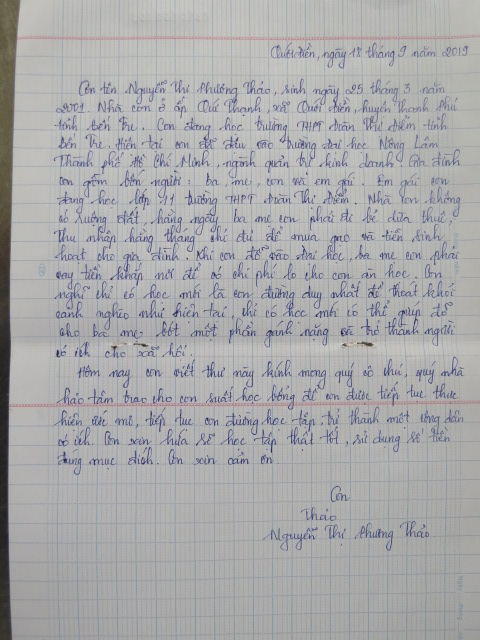 Quới Điền, ngày 18 tháng 9 năm 2019
Con tên Nguyễn Thị Phương Thảo, sinh ngày 25 tháng 3 năm
2001. Nhà con ở ấp Quí Thạnh, xã Quới Điền, huyện Thạnh Phú
tỉnh Bến Tre. Con đang học trường THPT Đoàn Thị Điểm tỉnh
Bến Tre. Hiện tại con đã đậu vào trường đại học Nông Lâm
Thành phố Hồ Chí Minh, ngành quản trị kinh doanh. Gia đình
con gồm bốn người: ba, mẹ, con và em gái. Em gái con
đang học lớp 11 trường THPT Đoàn Thị Điểm. Nhà con không
có ruộng đất, hằng ngày ba mẹ con phải đi bẻ dừa thuê,
thu nhập hằng tháng chỉ đủ để mua gạo và tiền sinh
hoạt cho gia đình. Khi con đỗ vào đại học, ba mẹ con phải
vay tiền khắp nơi để có chi phí lo cho con ăn học. Con
nghĩ chỉ có học mới là con đường duy nhất để thoát khỏi
cảnh nghèo như hiện tại, chỉ có học mới có thể giúp đỡ
cho ba mẹ bớt một phần gánh nặng và trở thành người
có ích cho xã hội.
Hôm nay con viết thư này kính mong quý cô chú, quý nhà
hảo tâm trao cho con suất học bổng để con được tiếp tục thực
hiện ước mơ, tiếp tục con đường học tập, trở thành một công dân
có ích. Con xin hứa sẽ học tập thật tốt, sử dụng số tiền
đúng mục đích. Con xin cảm ơn.
Con
Thảo
Nguyễn Thị Phương Thảo